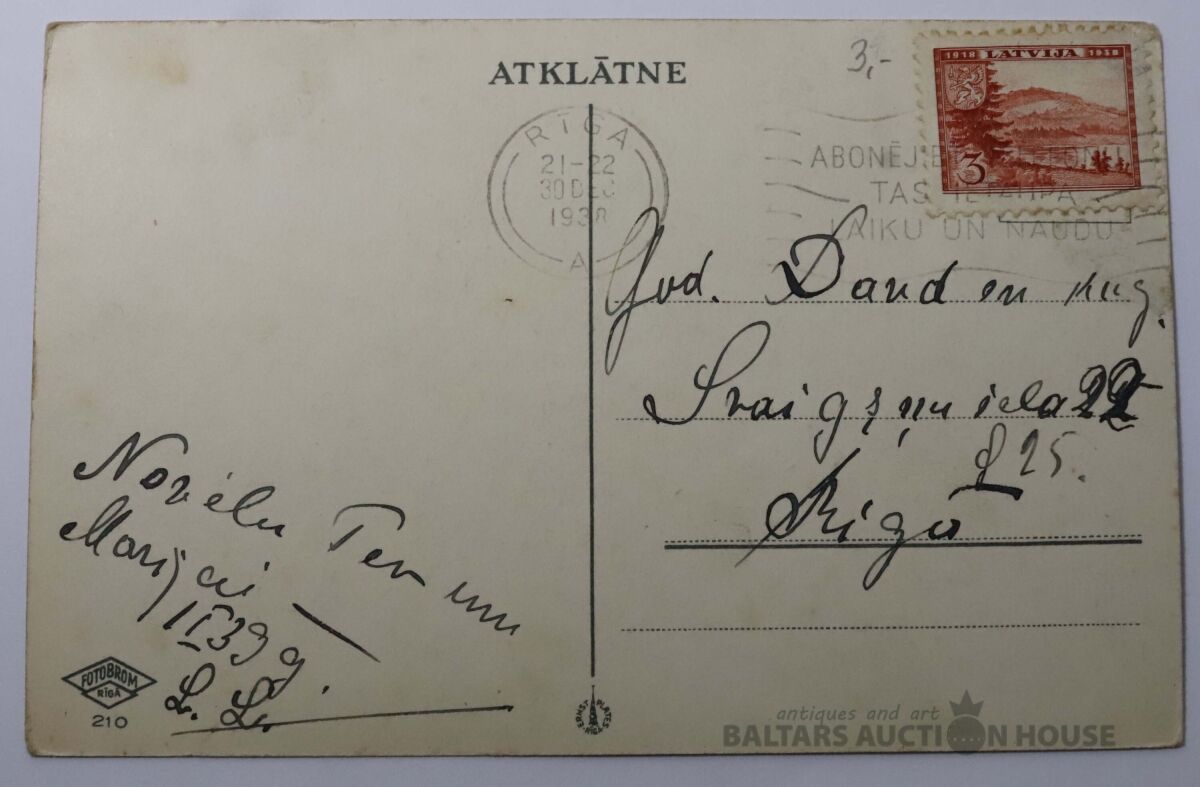 ATKLĀTNE
3,-
1918 LATVIJA 1938
3
RĪGA
21-22
30 DEC
1938
A
ABONĒJIET
TAS IETAUPA
LAIKU UN NAUDU
God. Daud en kug.
Svaigzņu iela 22
25.
Rīga
Novēlu Tev un
Marijai
1939 g.
L. L.
FOTOBROM
RĪGĀ
210
ERNST PLATES RĪGĀ
antiques and art
BALTARS AUCTION HOUSE